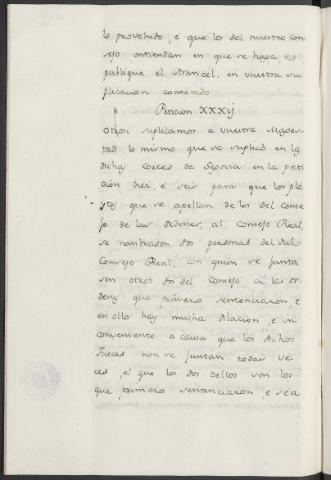 lo provehido, e que los del nuestro con
sejo entiendan en que se haga e se
publique el Arancel, en vuestra su
plicacion contenido
Peticion XXXij.
Otrosi suplicamos a vuestra Mages
tad lo mismo que se suplicó en las
dichas cortes de Segovia en la peti
ción diez, e seis para que los ple
ytos que se apellan de los del conse
jo de las ordenes, al Consejo Real,
se nombrasen dos personas del dicho
Consejo Real, con quien se junta
sen otros dos del Consejo de las or
denes que primero sentenciaron, e
en ello hay mucha dilacion, e in
conveniente a causa que los dichos
Jueces non se juntan todas ve
ces, e que los dos dellos son los
que primero sentenciaron, e sea